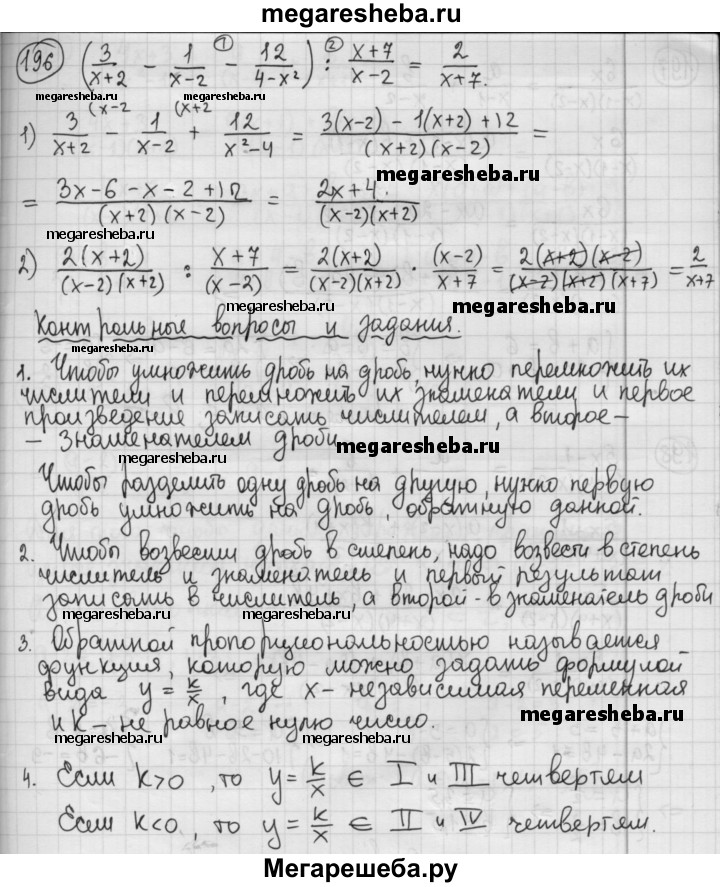 megaresheba.ru
196 (3/(x+2) - 1/(x-2) - 12/(4-x²)) : (x+7)/(x-2) = 2/(x+7).
① ②
megaresheba.ru (x-2 (x+2 megaresheba.ru
1) 3/(x+2) - 1/(x-2) + 12/(x²-4) = (3(x-2) - 1(x+2) + 12)/((x+2)(x-2)) =
megaresheba.ru
= (3x-6-x-2+12)/((x+2)(x-2)) = (2x+4)/((x-2)(x+2))
megaresheba.ru
2) 2(x+2)/((x-2)(x+2)) : (x+7)/(x-2) = 2(x+2)/((x-2)(x+2)) · (x-2)/(x+7) = 2(x+2)(x-2)/((x-2)(x+2)(x+7)) = 2/(x+7)
megaresheba.ru megaresheba.ru
Контрольные вопросы и задания.
megaresheba.ru
1. Чтобы умножить дробь на дробь, нужно перемножить их
числители и перемножить их знаменатели и первое
произведение записать числителем, а второе -
- знаменателем дроби
megaresheba.ru
megaresheba.ru
Чтобы разделить одну дробь на другую, нужно первую
дробь умножить на дробь, обратную данной.
2. Чтобы возвести дробь в степень, надо возвести в степень
числитель и знаменатель и первый результат
записать в числитель, а второй - в знаменатель дроби
megaresheba.ru megaresheba.ru
3. Обратной пропорциональностью называется
функция, которую можно задать формулой
вида y = k/x, где x - независимая переменная
и k - не равное нулю число.
megaresheba.ru
megaresheba.ru megaresheba.ru
4. Если k>0, то y = k/x ∈ I и III четвертям
Если k<0, то y = k/x ∈ II и IV четвертям.
Мегарешеба.ру